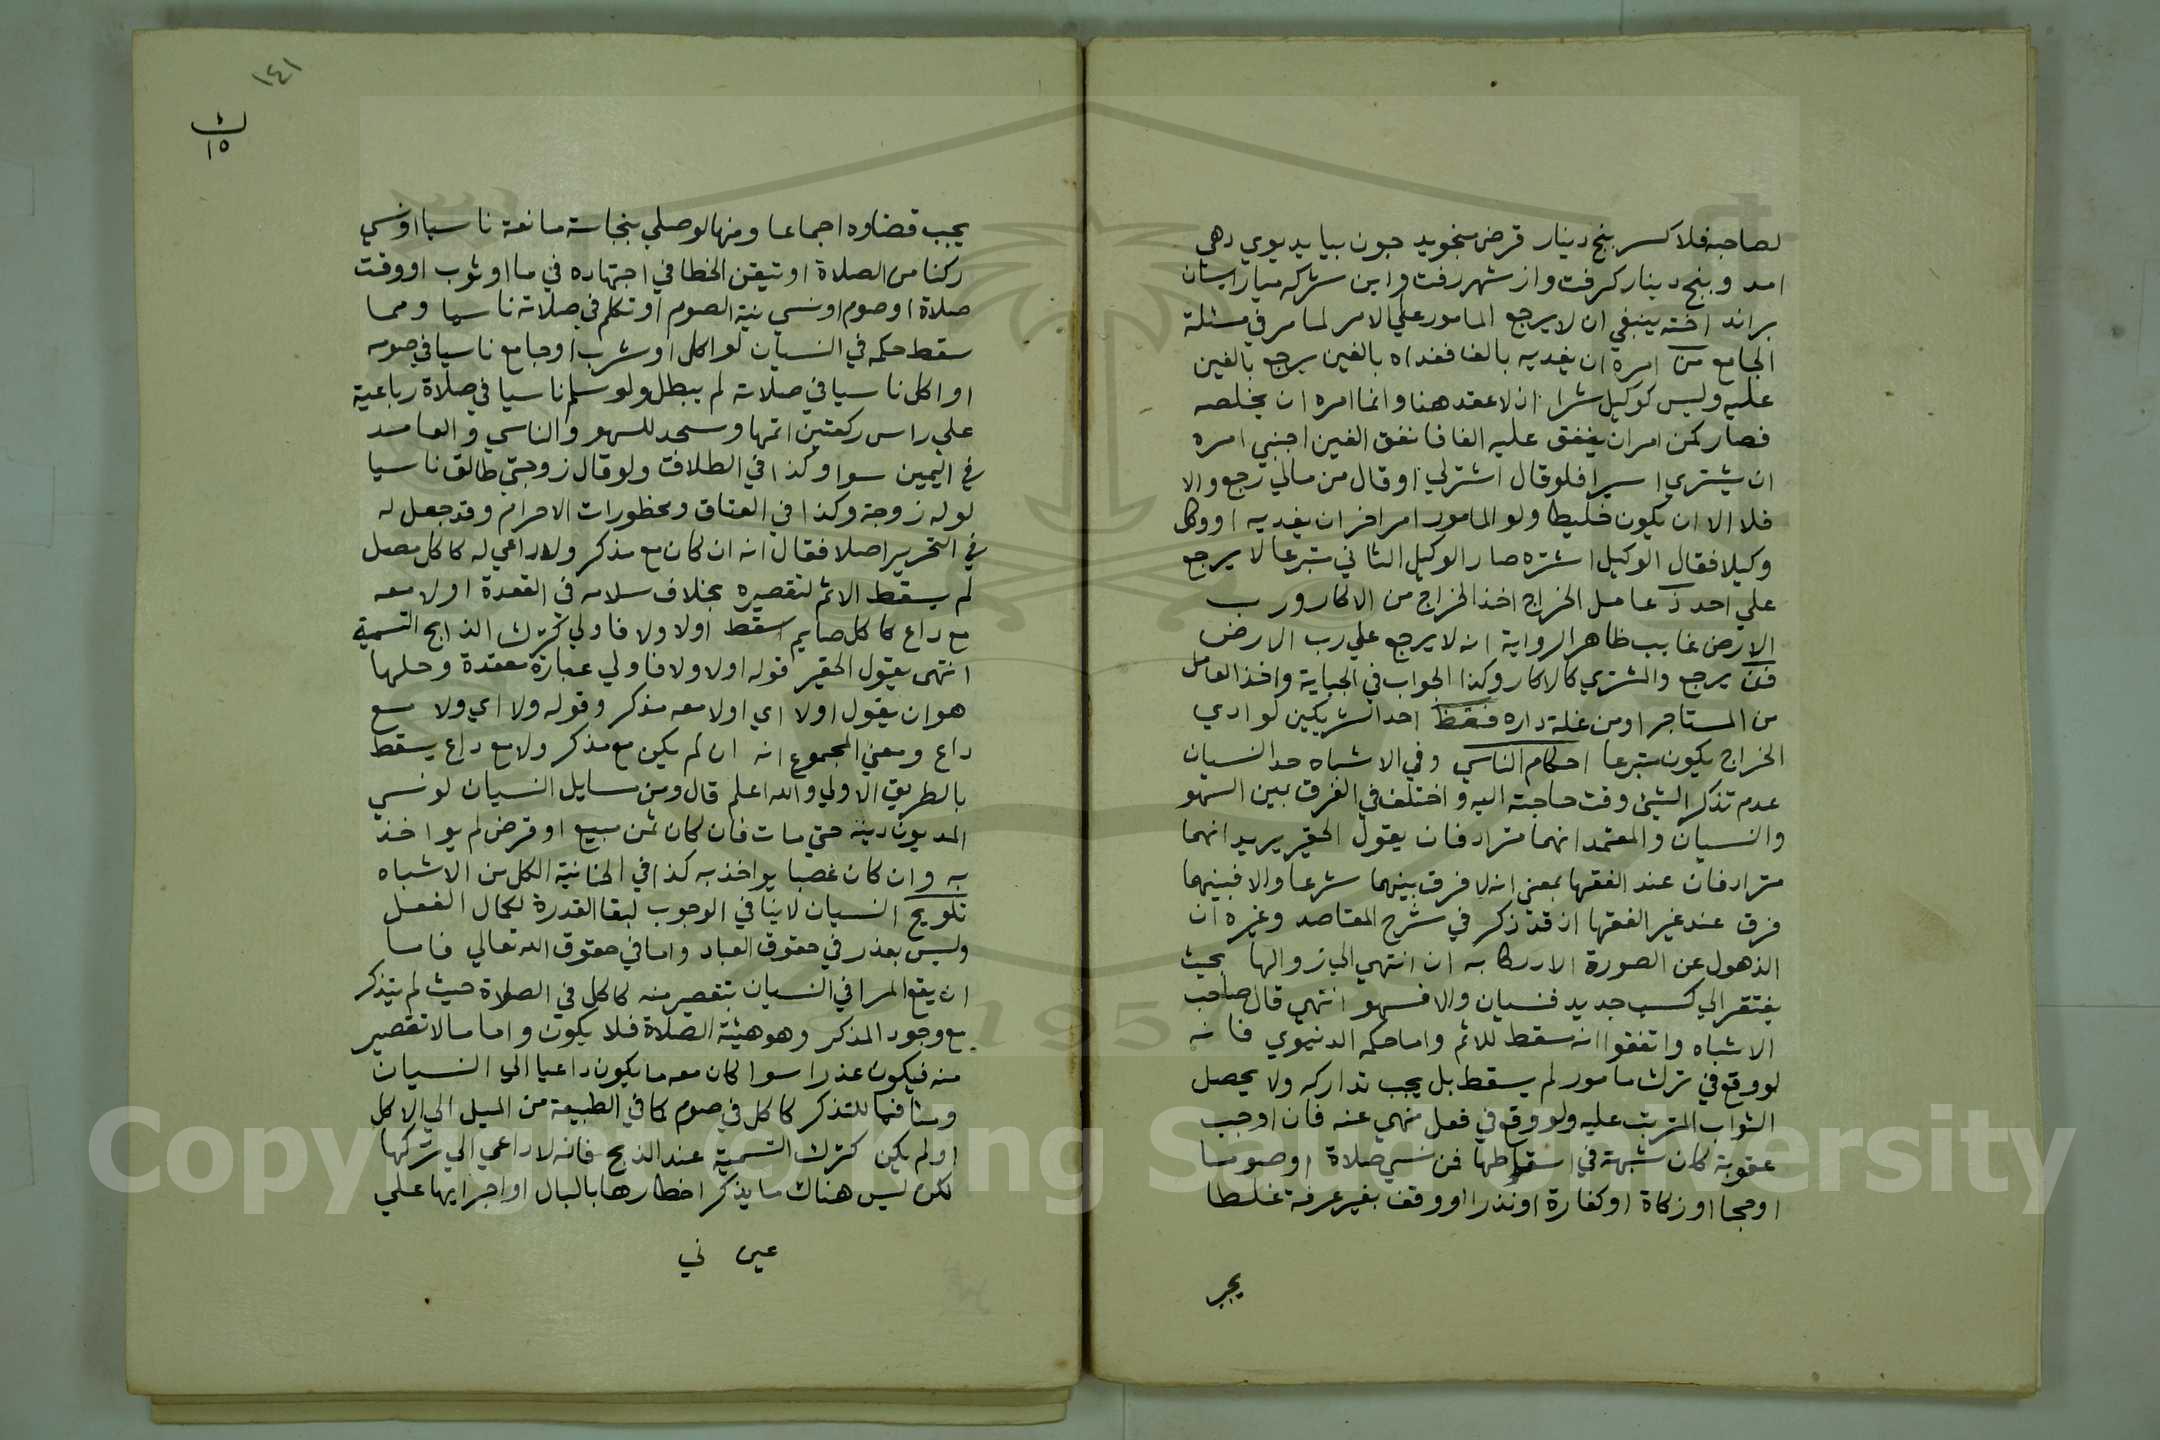 لصاحبه فلا كسر بنج دينار قرض بخويد جون بيايد بوي دهي
امد وبنج دينار كرفت واز شهر رفت واين سركه ميار ايشان
براند اخته ينبغي ان لا يرجع المامور علي الامر لما مر في مسئلة
الجامع من امره ان يفديه بالف ففداه بالفين يرجع بالفين
عليه وليس كوكيل شرا اذ لا عقد هنا وانما امره ان يخلصه
فصار كمن امر ان ينفق عليه الفا فانفق الفين اجنبي امره
ان يشتري اسيرا فلو قال اشتر لي او قال من مالي رجع والا
فلا الا ان يكون خليطا ولو المامور امر اخر ان يفديه او وكل
وكيلا فقال الوكيل اشتره صار الوكيل الثاني متبرعا لا يرجع
علي احد ذ عامل الخراج اخذ الخراج من الاكار ورب
الارض غايب ظاهر الرواية انه لا يرجع علي رب الارض
فن يرجع والمشتري كالاكار وكذا الجواب في الجباية واخذ العامل
من المستاجر او من غلة داره فقظ احد الشريكين لو ادي
الخراج يكون متبرعا احكام الناسي وفي الاشباه حد النسيان
عدم تذكر الشئ وقت حاجته اليه واختلف في الفرق بين السهو
والنسيان والمعتمد انهما مترادفان يقول الحقير يريد انهما
مترادفان عند الفقها بمعني انه لا فرق بينهما شرعا والا فبينهما
فرق عند غير الفقها اذ قد ذكر في شرح المقاصد وغيره ان
الذهول عن الصورة الادراكا به ان انتهي الي زوالها بحيث
يفتقر الي كسب جديد فنسيان والا فسهو انتهي قال صاحب
الاشباه واتفقوا انه سقط للاثم واما حكمه الدنيوي فانه
لو وقع في ترك مامور لم يسقط بل يجب تداركه ولا يحصل
الثواب المترتب عليه ولو وقع في فعل منهي عنه فان اوجب
عقوبة كان شبهة في اسقاطها فمن نسي صلاة او صوما
او حجا او زكاة او كفارة او نذرا او وقف بغير عرفة غلطا
يجب
١٤١
١٥
يجب قضاوه اجماعا ومنها لو صلي بنجاسة مانعة ناسيا او نسي
ركنا من الصلاة او تيقن الخطا في اجتهاده في ما او ثوب او وقت
صلاة او صوم او نسي نية الصوم او تكلم في صلاته ناسيا ومما
سقط حكمه في النسيان لو اكل او شرب او جامع ناسيا في صومه
او اكل ناسيا في صلاته لم يبطل ولو سلم ناسيا في صلاة رباعية
علي راس ركعتين اتمها وسجد للسهو والناسي والعامد
في اليمين سوا وكذا في الطلاق ولو قال زوجتي طالق ناسيا
لو له زوجة وكذا في العتاق ومحظورات الاحرام وقد جعل له
في التحرير اصلا فقال انه ان كان مع مذكر ولا داعي له كاكل مصل
لم يسقط الاثم لتقصيره بخلاف سلامه في القعدة اولا معه
مع داع كاكل صايم اسقط اولا ولا فاولي كترك الذابح التسمية
انتهي يقول الحقير قوله اولا ولا فاولي عبارة معقدة وحلها
هو ان يقول اولا اي اولا معه مذكر وقوله ولا اي ولا مع
داع ومعني المجموع انه ان لم يكن مع مذكر ولا مع داع يسقط
بالطريق الاولي والله اعلم قال ومن مسايل النسيان لو نسي
المديون دينه حتي مات فان كان ثمن مبيع او قرض لم يواخذ
به وان كان غصبا يواخذ به كذا في الخانية الكل من الاشباه
تلويح النسيان لا ينافي الوجوب لبقا القدرة لكمال الفعل
وليس بعذر في حقوق العباد واما في حقوق الله تعالي فاما
ان يقع المر افي النسيان بتقصير منه كاكل في الصلاة حيث لم يتذكر
مع وجود المذكر وهو هيئة الصلاة فلا يكون واما ما لا تقصير
منه فيكون عذرا سوا كان معه ما يكون داعيا الي النسيان
ومنافيا للتذكر كاكل في صوم كما في الطبيعة من الميل الي الاكل
او لم يكن كترك التسمية عند الذبح فانه لا داعي الي تركها
لكن ليس هناك ما يذكر اخطارها بالبال او اجرايها علي
Copyright © King Saud University
1957